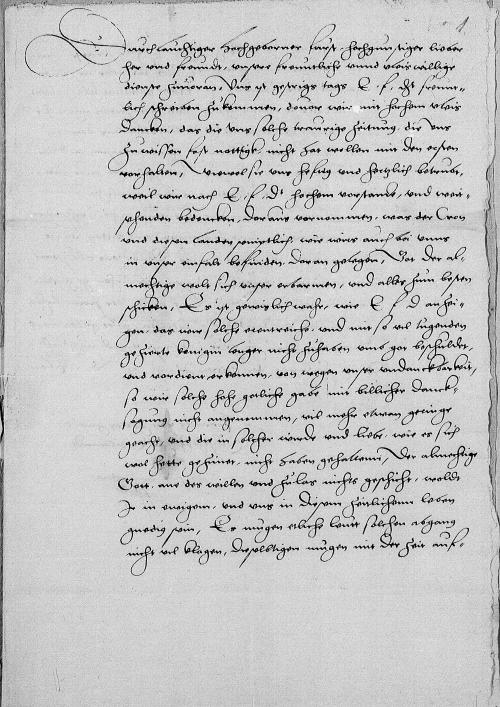 1
Durchlauchtiger hochgeborner furst, hochgunstiger lieber
her und freundt, unsere freuntliche unnd vleis willige
dienste zuvoran, Uns ist gestrigs tags E. f. dt freunt-
lich schreiben zukommen, dovor wir mit hochem vleis
dancken, das die uns solche traurige zeitung, die uns
zu wissen fast nottigk, nicht hat wollen mit den ersten
vorhalten, Wiewol sie uns hefftig und hertzlich betrubt,
weil wir nach E. f. Dt hochem vorstandt, und
bedencken, doraus vornommen, was der Cron
und diesen landen semptlich, wie wirs auch bei unns
in unser einfalt befinden, doran gelegen, Got der al-
mechtige wolt sich unser erbarmen, und alles zum besten
schicken, Es ist gewislich wahr, wie E. f. D anzei-
gen, das wir solche und mit so vil tugenden
gezierte konigin lenger nicht zuhaben umb got beschuldet,
und vordient erkennen, von wegen unser undanckbarkeit,
so wir solche hohe gotliche gabe mit billicher danck-
sagung nicht angenommen, vil mehr etwan geringe
geacht, und die in solcher wirde und liebe, wie es sich
wol hette geburet, nicht haben gehaltenn, Der almechtige
Gott, ane des willen und zulas nichts geschicht, wolde
Ir in ewigem, und uns in diesem zeitlichenn leben
gnedig sein, Es mugen etliche leut solchen abgang
nicht vil klagen, dieselbtigen mugen mit der zeit auf-